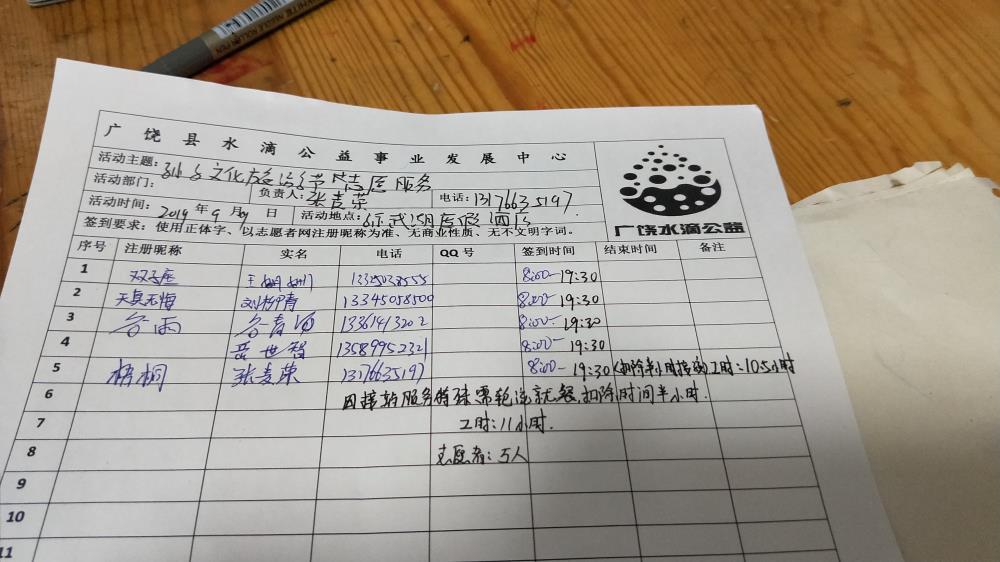 广饶县水滴公益事业发展中心
活动主题：孙子文化旅游节志愿服务
活动部门： 负责人：张麦荣 电话：13176635197
活动时间：2019年9月 日 活动地点：孙武湖度假酒店
签到要求：使用正体字、以志愿者网注册昵称为准、无商业性质、无不文明字词。
广饶水滴公益
序号 注册昵称 实名 电话 QQ号 签到时间 结束时间 备注
1 双子座 王 8:00-19:30
2 天真无悔 刘 13345058500 8:00-19:30
3 谷雨 谷春 13361413202 8:00-19:30
4 世智 13589952321 19:30
5 梧桐 张麦荣 13176635197 8:00-19:30 (扣除半小时 工时：10.5小时
6 因接站服务特殊需轮流就餐，扣除时间半小时.
7 工时：11小时.
8 志愿者：5人
9
10
11